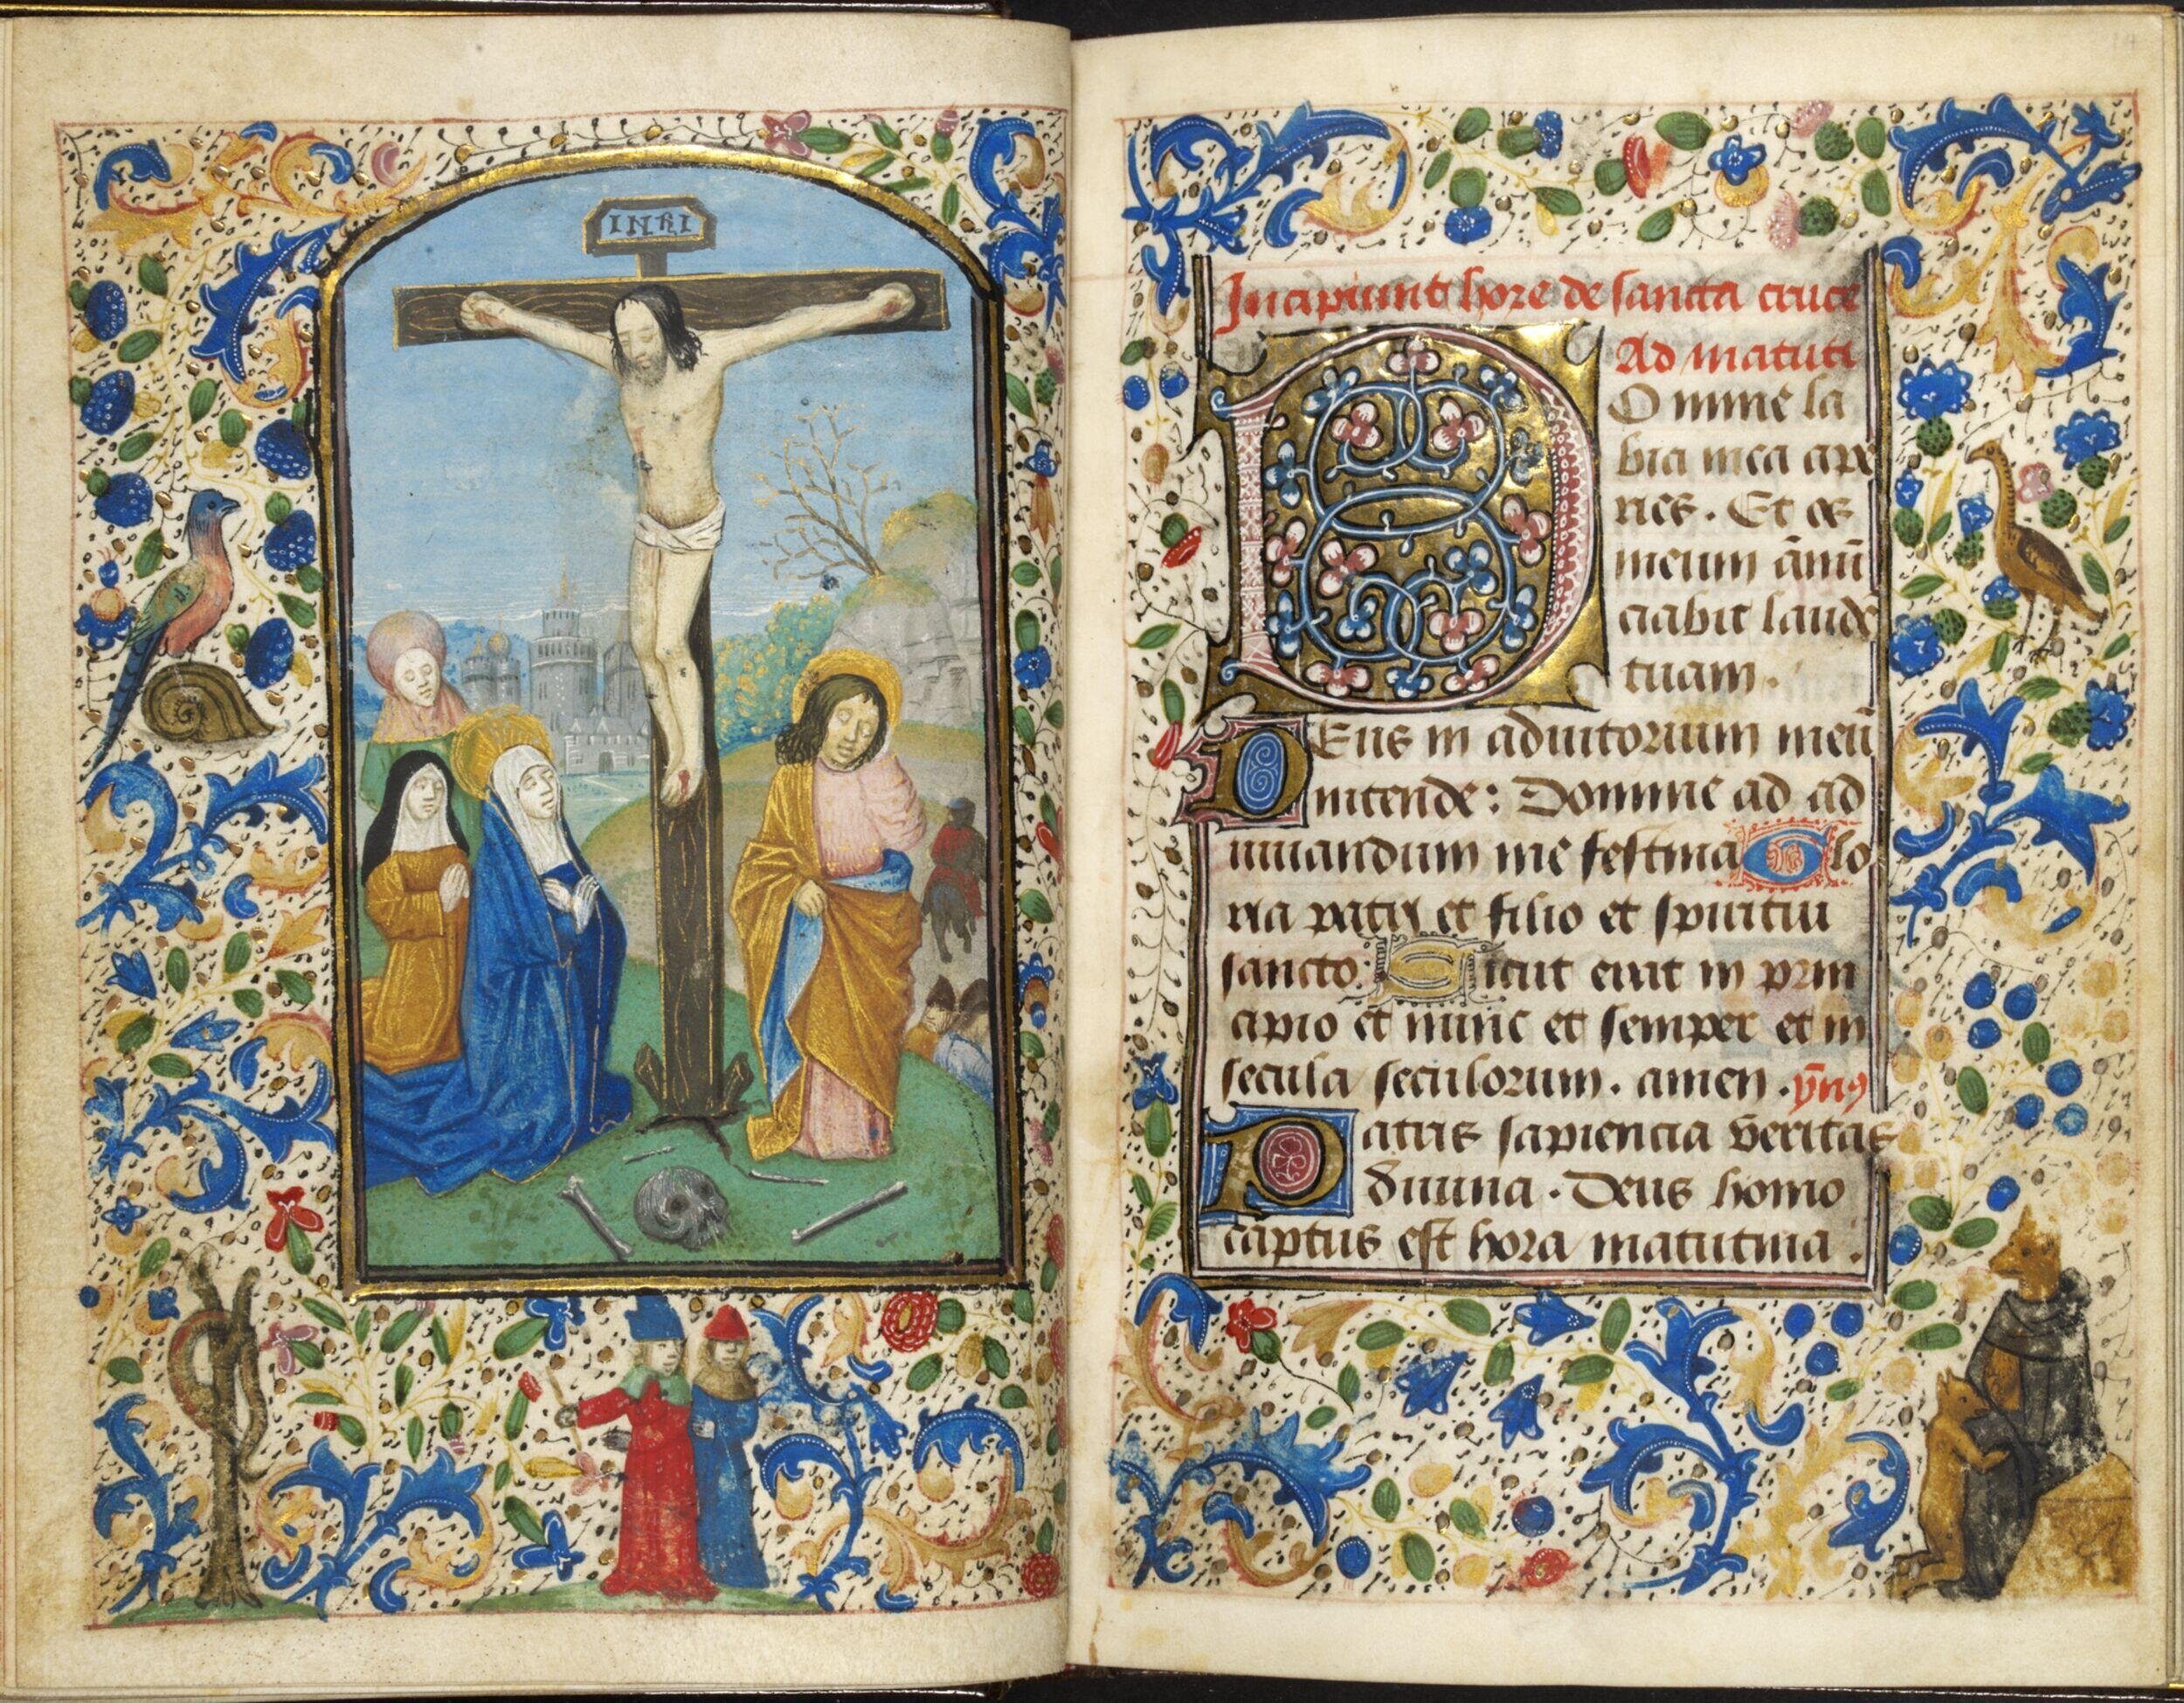 INRI
Incipiunt hore de sancta cruce
Ad matuti
Domine la
bia mea ape
ries. Et os
meum ānū
ciabit laudē
tuam.
Deus in adiutorium meū
intende: Domine ad ad
iuuandum me festina Glo
ria patri et filio et spiritui
sancto. Sicut erat in prin
cipio et nunc et semper et in
secula seculorum. amen. ȳnꝰ
Patris sapiencia veritas
diuina. Deus homo
captus est hora matutina.